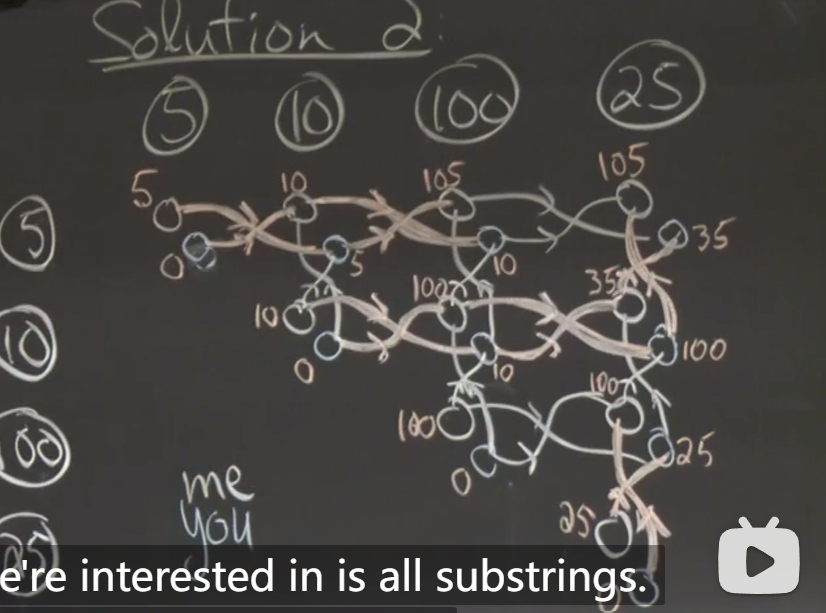 Solution 2:
5 10 100 25
5 10 105 105
5 0 5 10 35
10 10 100 35
0 10 100
100 100 100
0 25
me
you
25 25
e're interested in is all substrings.
0